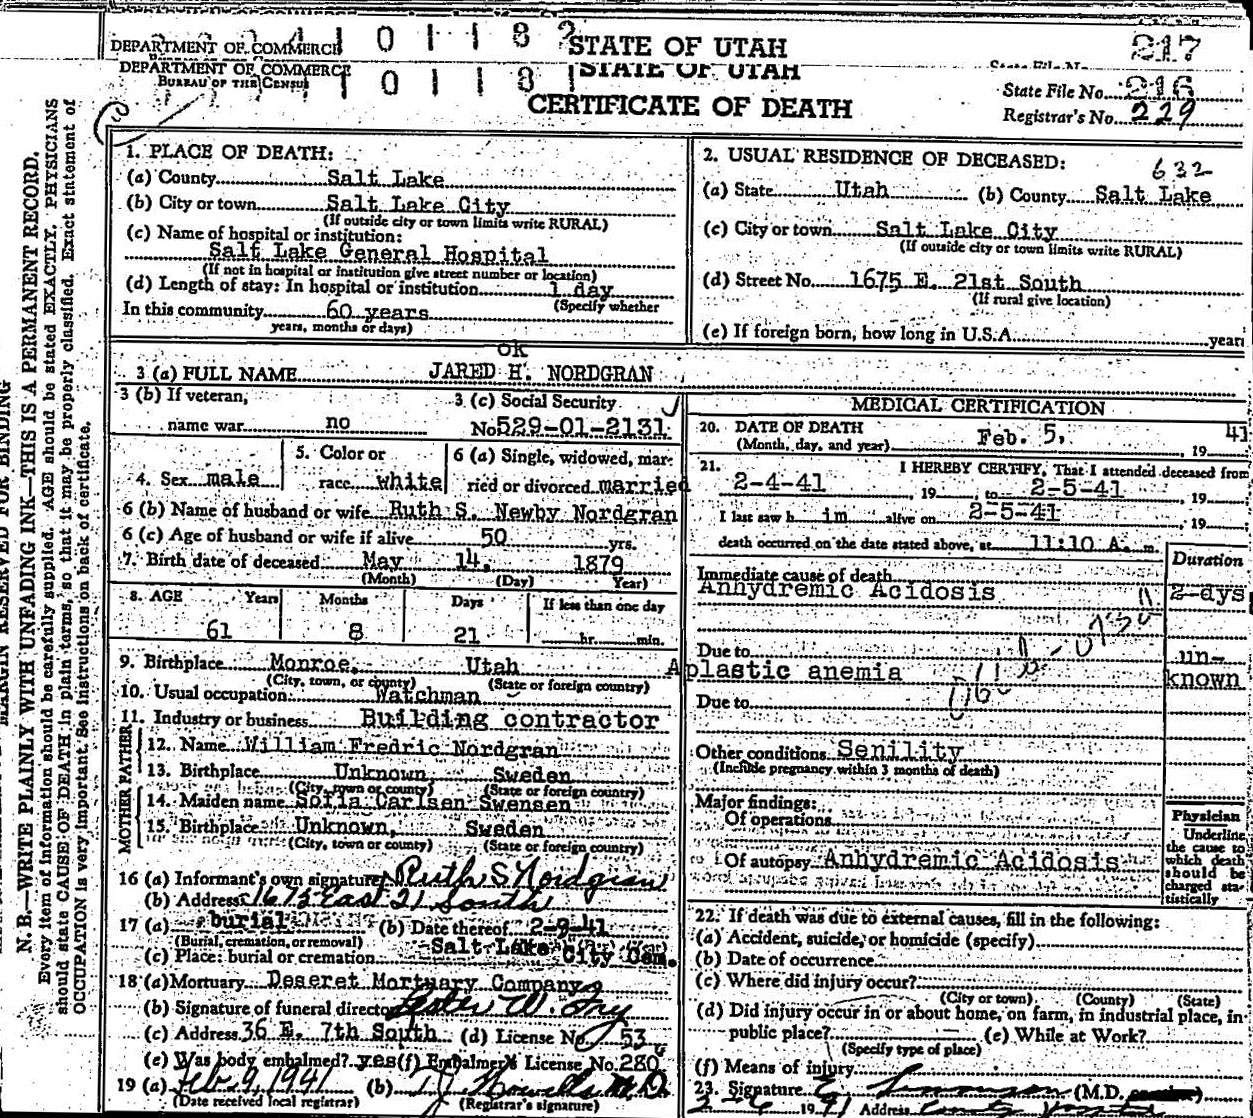 DEPARTMENT OF COMMERCE STATE OF UTAH 217
DEPARTMENT OF COMMERCE STATE OF UTAH
BUREAU OF THE CENSUS State File No. 216
CERTIFICATE OF DEATH Registrar's No. 229
MARGIN RESERVED FOR BINDING
N. B.—WRITE PLAINLY WITH UNFADING INK—THIS IS A PERMANENT RECORD.
Every item of information should be carefully supplied. AGE should be stated EXACTLY. PHYSICIANS
should state CAUSE OF DEATH in plain terms, so that it may be properly classified. Exact statement of
OCCUPATION is very important. See instructions on back of certificate.
1. PLACE OF DEATH:
(a) County Salt Lake
(b) City or town Salt Lake City
(If outside city or town limits write RURAL)
(c) Name of hospital or institution:
Salt Lake General Hospital
(If not in hospital or institution give street number or location)
(d) Length of stay: In hospital or institution 1 day
(Specify whether
In this community 60 years
years, months or days)
2. USUAL RESIDENCE OF DECEASED: 632
(a) State Utah (b) County Salt Lake
(c) City or town Salt Lake City
(If outside city or town limits write RURAL)
(d) Street No. 1675 E. 21st South
(If rural give location)
(e) If foreign born, how long in U.S.A. years
ok
3 (a) FULL NAME JARED H. NORDGRAN
3 (b) If veteran, 3 (c) Social Security
name war no No. 529-01-2131
4. Sex male 5. Color or race white 6 (a) Single, widowed, married or divorced married
6 (b) Name of husband or wife Ruth S. Newby Nordgran
6 (c) Age of husband or wife if alive 50 yrs.
7. Birth date of deceased May 14, 1879
(Month) (Day) Year)
8. AGE Years Months Days If less than one day
61 8 21 hr. min.
9. Birthplace Monroe, Utah
(City, town, or county) (State or foreign country)
10. Usual occupation Watchman
11. Industry or business Building contractor
FATHER
12. Name William Fredric Nordgran
13. Birthplace Unknown, Sweden
(City, town or county) (State or foreign country)
MOTHER
14. Maiden name Sofia Carlsen Swensen
15. Birthplace Unknown, Sweden
(City, town or county) (State or foreign country)
16 (a) Informant's own signature Ruth S Nordgran
(b) Address 1675 East 21 South
17 (a) burial (b) Date thereof 2-9-41
(Burial, cremation, or removal)
(c) Place: burial or cremation Salt Lake City Cem.
18 (a) Mortuary Deseret Mortuary Company
(b) Signature of funeral director
(c) Address 36 E. 7th South (d) License No. 53
(e) Was body embalmed? yes (f) Embalmer's License No. 280
19 (a) Feb 9, 1941 (b) M.D.
(Date received local registrar) (Registrar's signature)
MEDICAL CERTIFICATION
20. DATE OF DEATH Feb. 5, , 19 41
(Month, day, and year)
21. I HEREBY CERTIFY, That I attended deceased from
2-4-41 , 19 , to 2-5-41 , 19
I last saw h im alive on 2-5-41 , 19
death occurred on the date stated above, at 11:10 A. m.
Duration
Immediate cause of death
Anhydremic Acidosis 2-dys
Due to
Aplastic anemia un-known
Due to
Other conditions Senility
(Include pregnancy within 3 months of death)
Major findings:
Of operations
Of autopsy Anhydremic Acidosis
Physician
Underline
the cause to
which death
should be
charged sta-
tistically
22. If death was due to external causes, fill in the following:
(a) Accident, suicide, or homicide (specify)
(b) Date of occurrence
(c) Where did injury occur?
(City or town) (County) (State)
(d) Did injury occur in or about home, on farm, in industrial place, in
public place? (e) While at Work?
(Specify type of place)
(f) Means of injury
23. Signature (M.D.
2-6 1941 Address